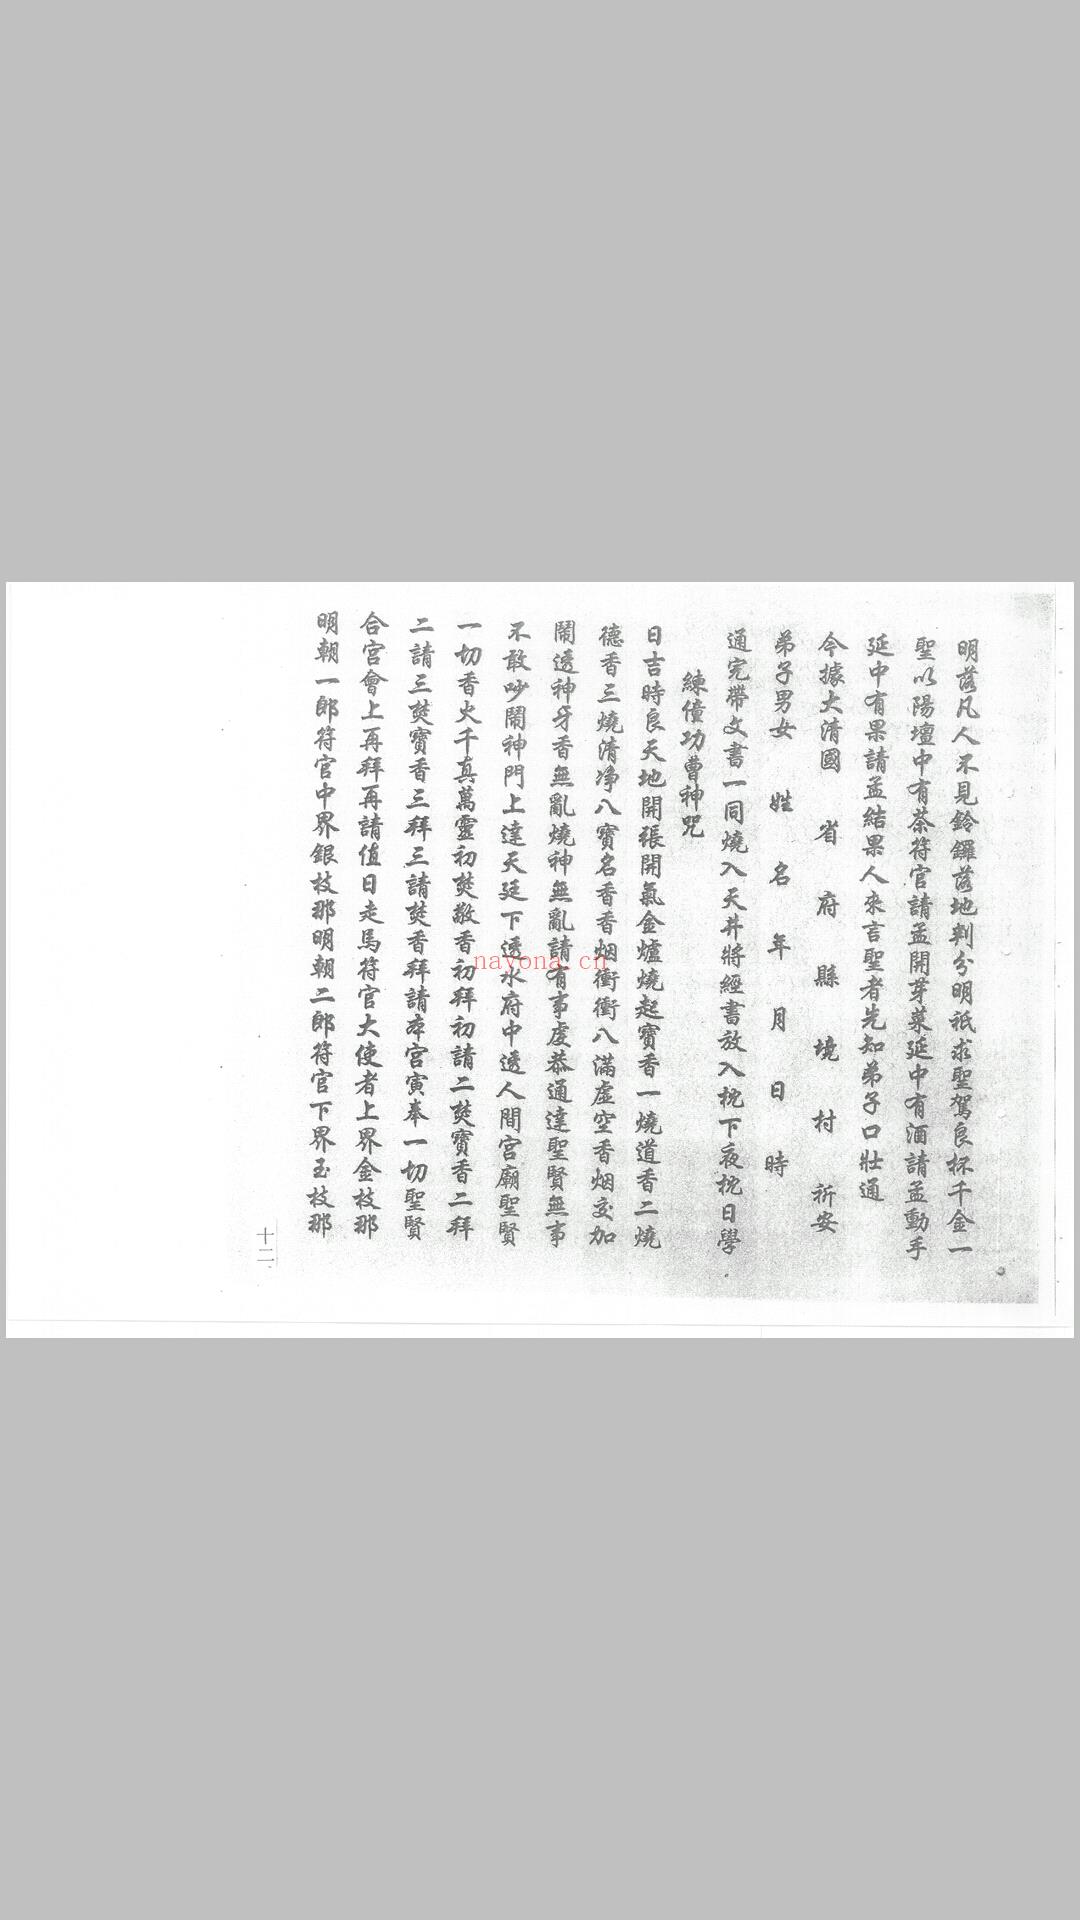 明落凡人不見鈴鑼落地判分明祇求聖駕良杯千金一
聖以陽壇中有茶符官請孟開芽菜延中有酒請孟動手
延中有果請孟結果人來言聖者先知弟子口壯通
今據大清國 省 府 縣 境 村 祈安
弟子男女 姓 名 年 月 日 時
通完帶文書一同燒入天井將經書放入枕下夜枕日學
練僮功曹神咒
日吉時良天地開張開氣金爐燒起寶香一燒道香二燒
德香三燒清净八寶名香香烟衝衝八滿虛空香烟交加
鬧透神牙香無亂燒神無亂請有事虔恭通達聖賢無事
不敢吵鬧神門上達天廷下透水府中透人間宮廟聖賢
一切香火千真萬靈初焚敬香初拜初請二焚寶香二拜
二請三焚寶香三拜三請焚香拜請本宮寅奉一切聖賢
合宮會上再拜再請值日走馬符官大使者上界金枝那
明朝一郎符官中界銀枝那明朝二郎符官下界玉枝那
十二
nayona.cn